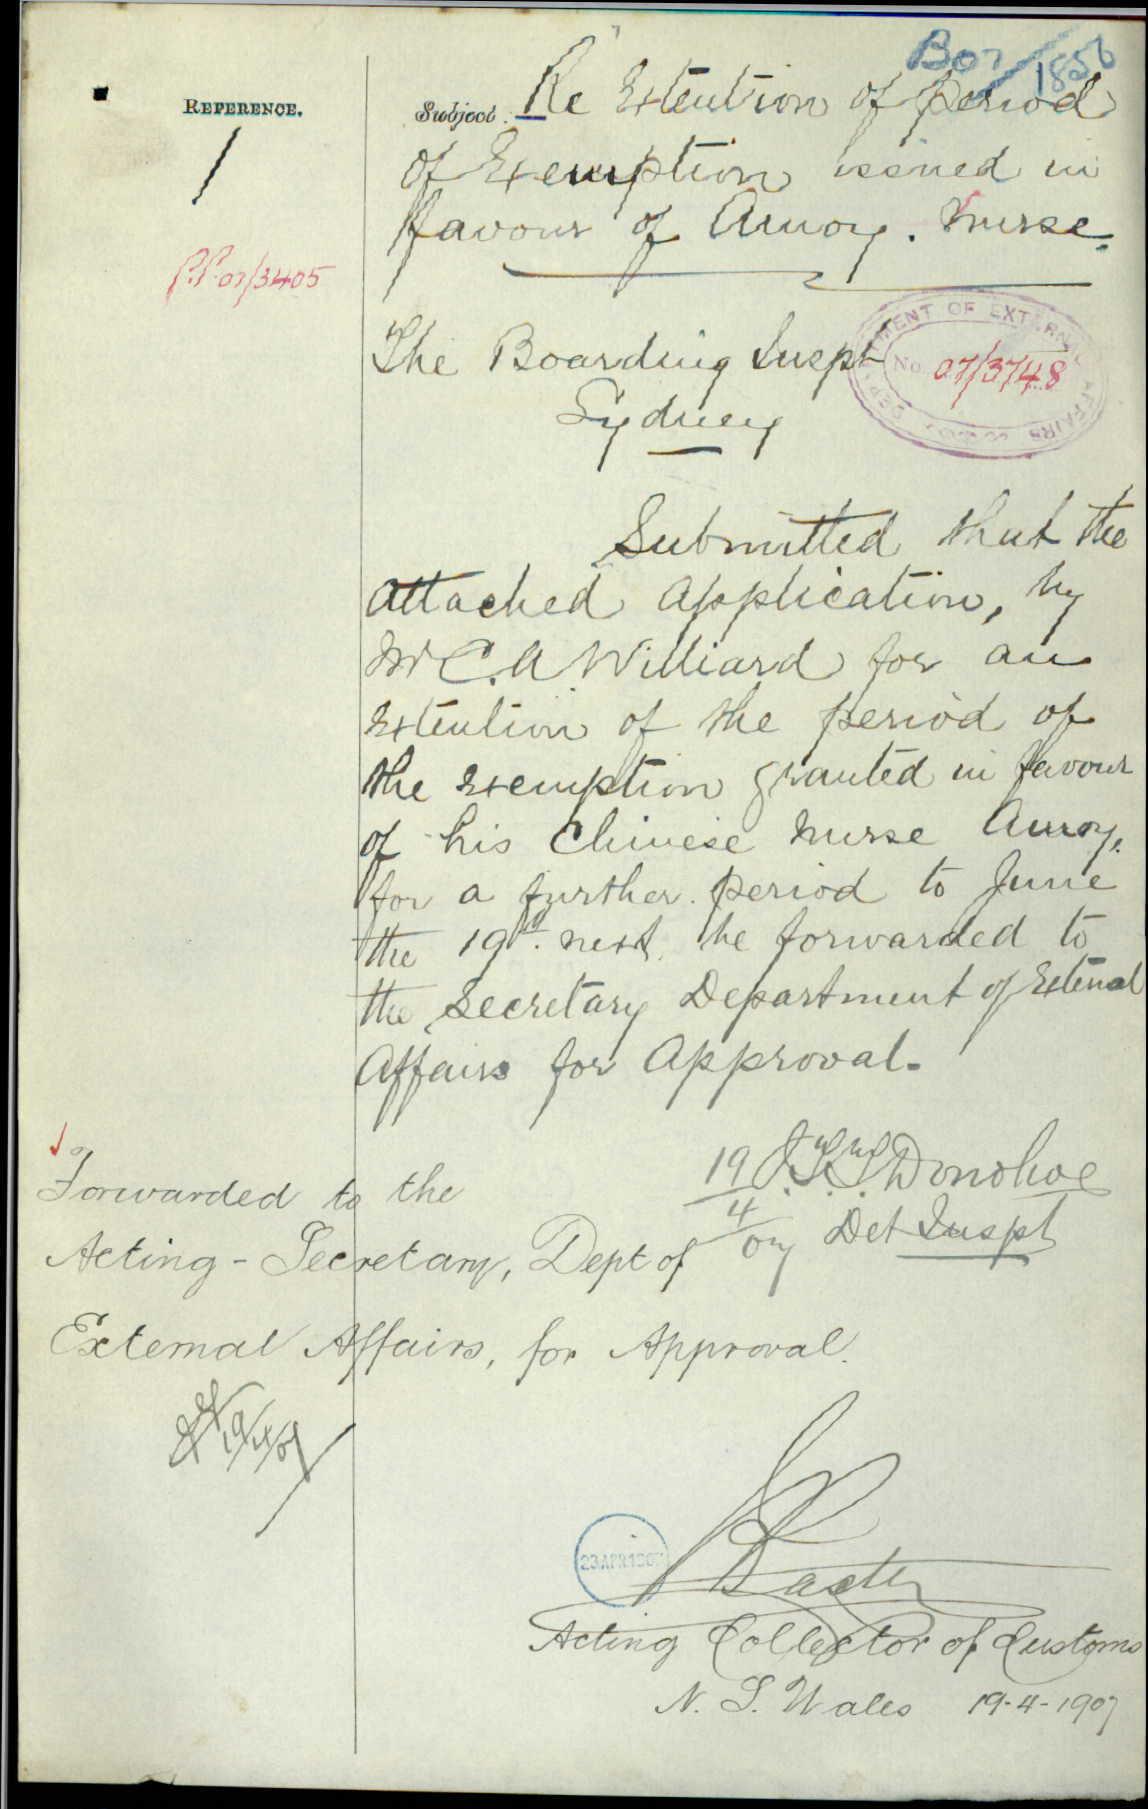 B07/1856
REFERENCE.
Subject. Re Extention of period
of Exemption issued in
favour of Amoy. Nurse.
P.P. 07/3405
The Boarding Inspt
Sydney
DEPARTMENT OF EXTERNAL AFFAIRS
No. 07/3748
Submitted that the
attached application, by
Mr C. A Williard for an
extention of the period of
the exemption granted in favour
of his Chinese nurse Amoy,
for a further period to June
the 19th next, be forwarded to
the Secretary Department of External
Affairs for Approval.
19/4/07 Donohoe
Det Inspt
Forwarded to the
Acting - Secretary, Dept of
External Affairs, for Approval.
19/4/07
23 APR 1907
Baxter
Acting Collector of Customs
N. S. Wales 19-4-1907